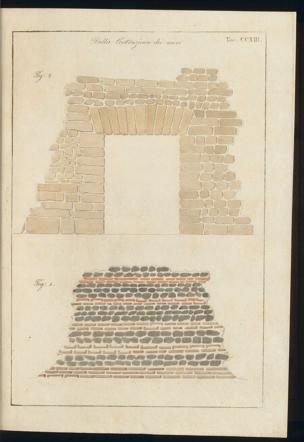 Della Costruzione dei muri
Tav. CCXIII.
Fig. 2.
Fig. 1.